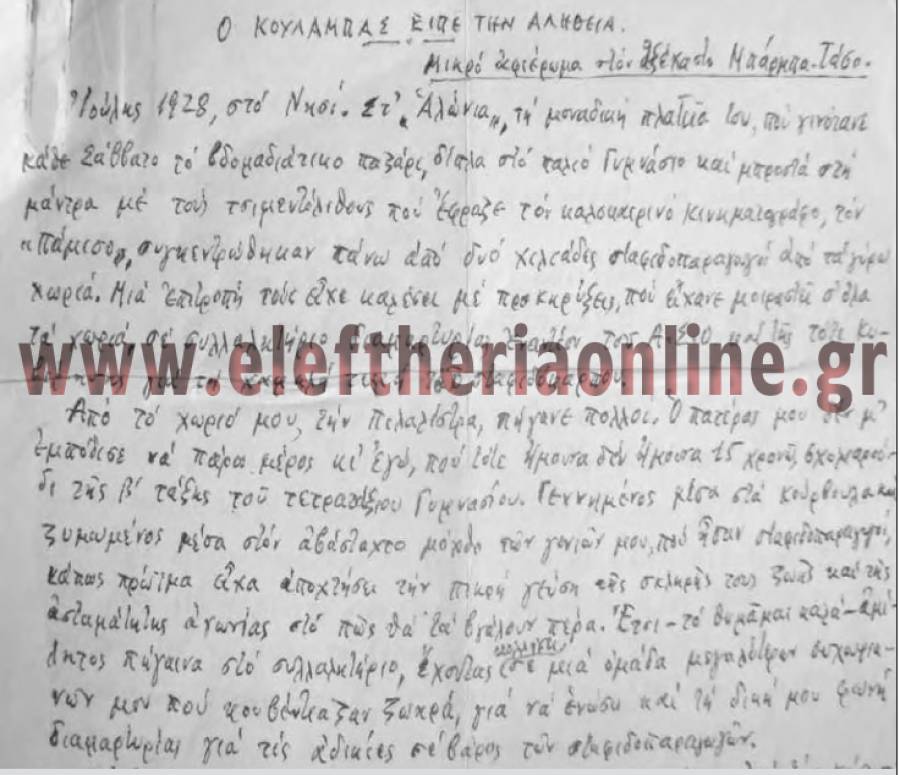 Ο ΚΟΥΛΑΜΠΑΣ ΕΙΠΕ ΤΗΝ ΑΛΗΘΕΙΑ.
Μικρό ἀφιέρωμα στόν ἀξέχαστο Μπάρμπα-Τάσο.
Ἰούλης 1928, στό Νησί. Στ' „Ἁλώνια„, τή μοναδική πλατεῖα του, πού γινότανε
κάθε Σάββατο τό βδομαδιάτικο παζάρι, δίπλα στό παλιό Γυμνάσιο καί μπροστά στή
μάντρα μέ τούς τσιμεντόλιθους πού ἔφραζε τόν καλοκαιρινό κινηματογράφο, τόν
„Πάμισο„, συγκεντρώθηκαν πάνω ἀπό δυό χιλιάδες σταφιδοπαραγωγοί ἀπό τά γύρω
χωριά. Μιά ἐπιτροπή τούς εἶχε καλέσει μέ προκηρύξεις, πού εἴχανε μοιραστῆ σ' ὅλα
τά χωριά, σέ συλλαλητήριο διαμαρτυρίας ἐναντίον τοῦ Α.Σ.Ο καί τῆς τότε κυ-
www.eleftheriaonline.gr
γιά τή χαμηλή τιμή τοῦ σταφιδόκαρπου.
Ἀπό τό χωριό μου, τήν Πελαλίστρα, πήγανε πολλοί. Ὁ πατέρας μου δέ μ'
ἐμπόδισε νά πάρω μέρος κι' ἐγώ, πού τότε ἤμουσα δέν ἤμουσα 15 χρονῶ, σχολιαρού-
δι τῆς β' τάξης τοῦ τετραταξίου Γυμνασίου. Γεννημένος μέσα στά κούρβουλα καί
ζυμωμένος μέσα στόν ἀβάσταχτο μόχθο τῶν γονιῶν μου, πού ἦσαν σταφιδοπαραγωγοί,
κάπως πρώιμα εἶχα ἀποχτήσει τήν πικρή γεύση τῆς σκληρῆς τους ζωῆς καί τῆς
ἀσταμάτητης ἀγωνίας στό πῶς θά τά βγάλουν πέρα. Ἔτσι-τό θυμᾶμαι καλά-ἀμί-
λητος πήγαινα στό συλλαλητήριο, ἔχοντας σέ μιά ὁμάδα μεγαλύτερων συχωρια-
νῶν μου πού κουβέντιαζαν ζωηρά, γιά νά ἑνώσω καί τή δική μου φωνή
διαμαρτυρίας γιά τίς ἀδικίες σέ βάρος τῶν σταφιδοπαραγωγῶν.